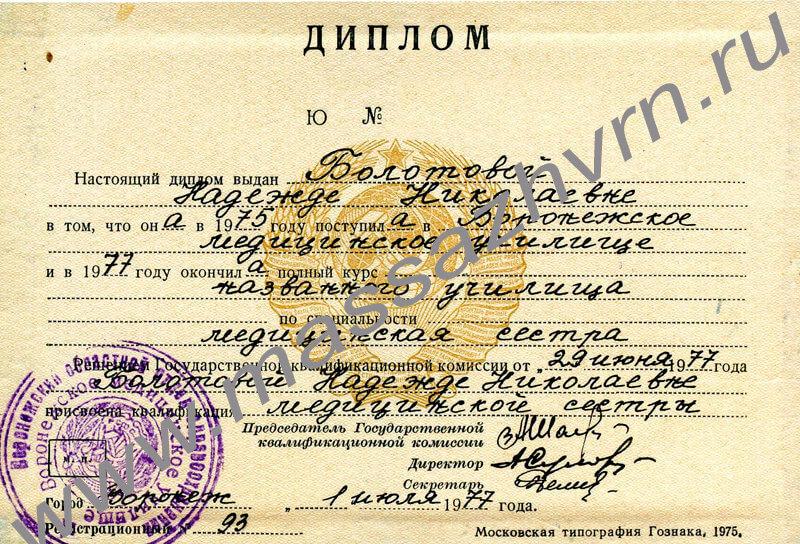 ДИПЛОМ
Ю №
Настоящий диплом выдан Болотовой
Надежде Николаевне
в том, что он а в 1975 году поступил а в Воронежское
медицинское училище
и в 1977 году окончил а полный курс
названного училища
по специальности
медицинская сестра
Решением Государственной квалификационной комиссии от „ 29 июня 1977 года
Болотовой Надежде Николаевне
присвоена квалификация медицинской сестры
Председатель Государственной
квалификационной комиссии
Директор
Секретарь
м. п.
Город Воронеж „ 1 июля 1977 года.
Регистрационный № 93
Московская типография Гознака, 1975.
www.massazhvrn.ru